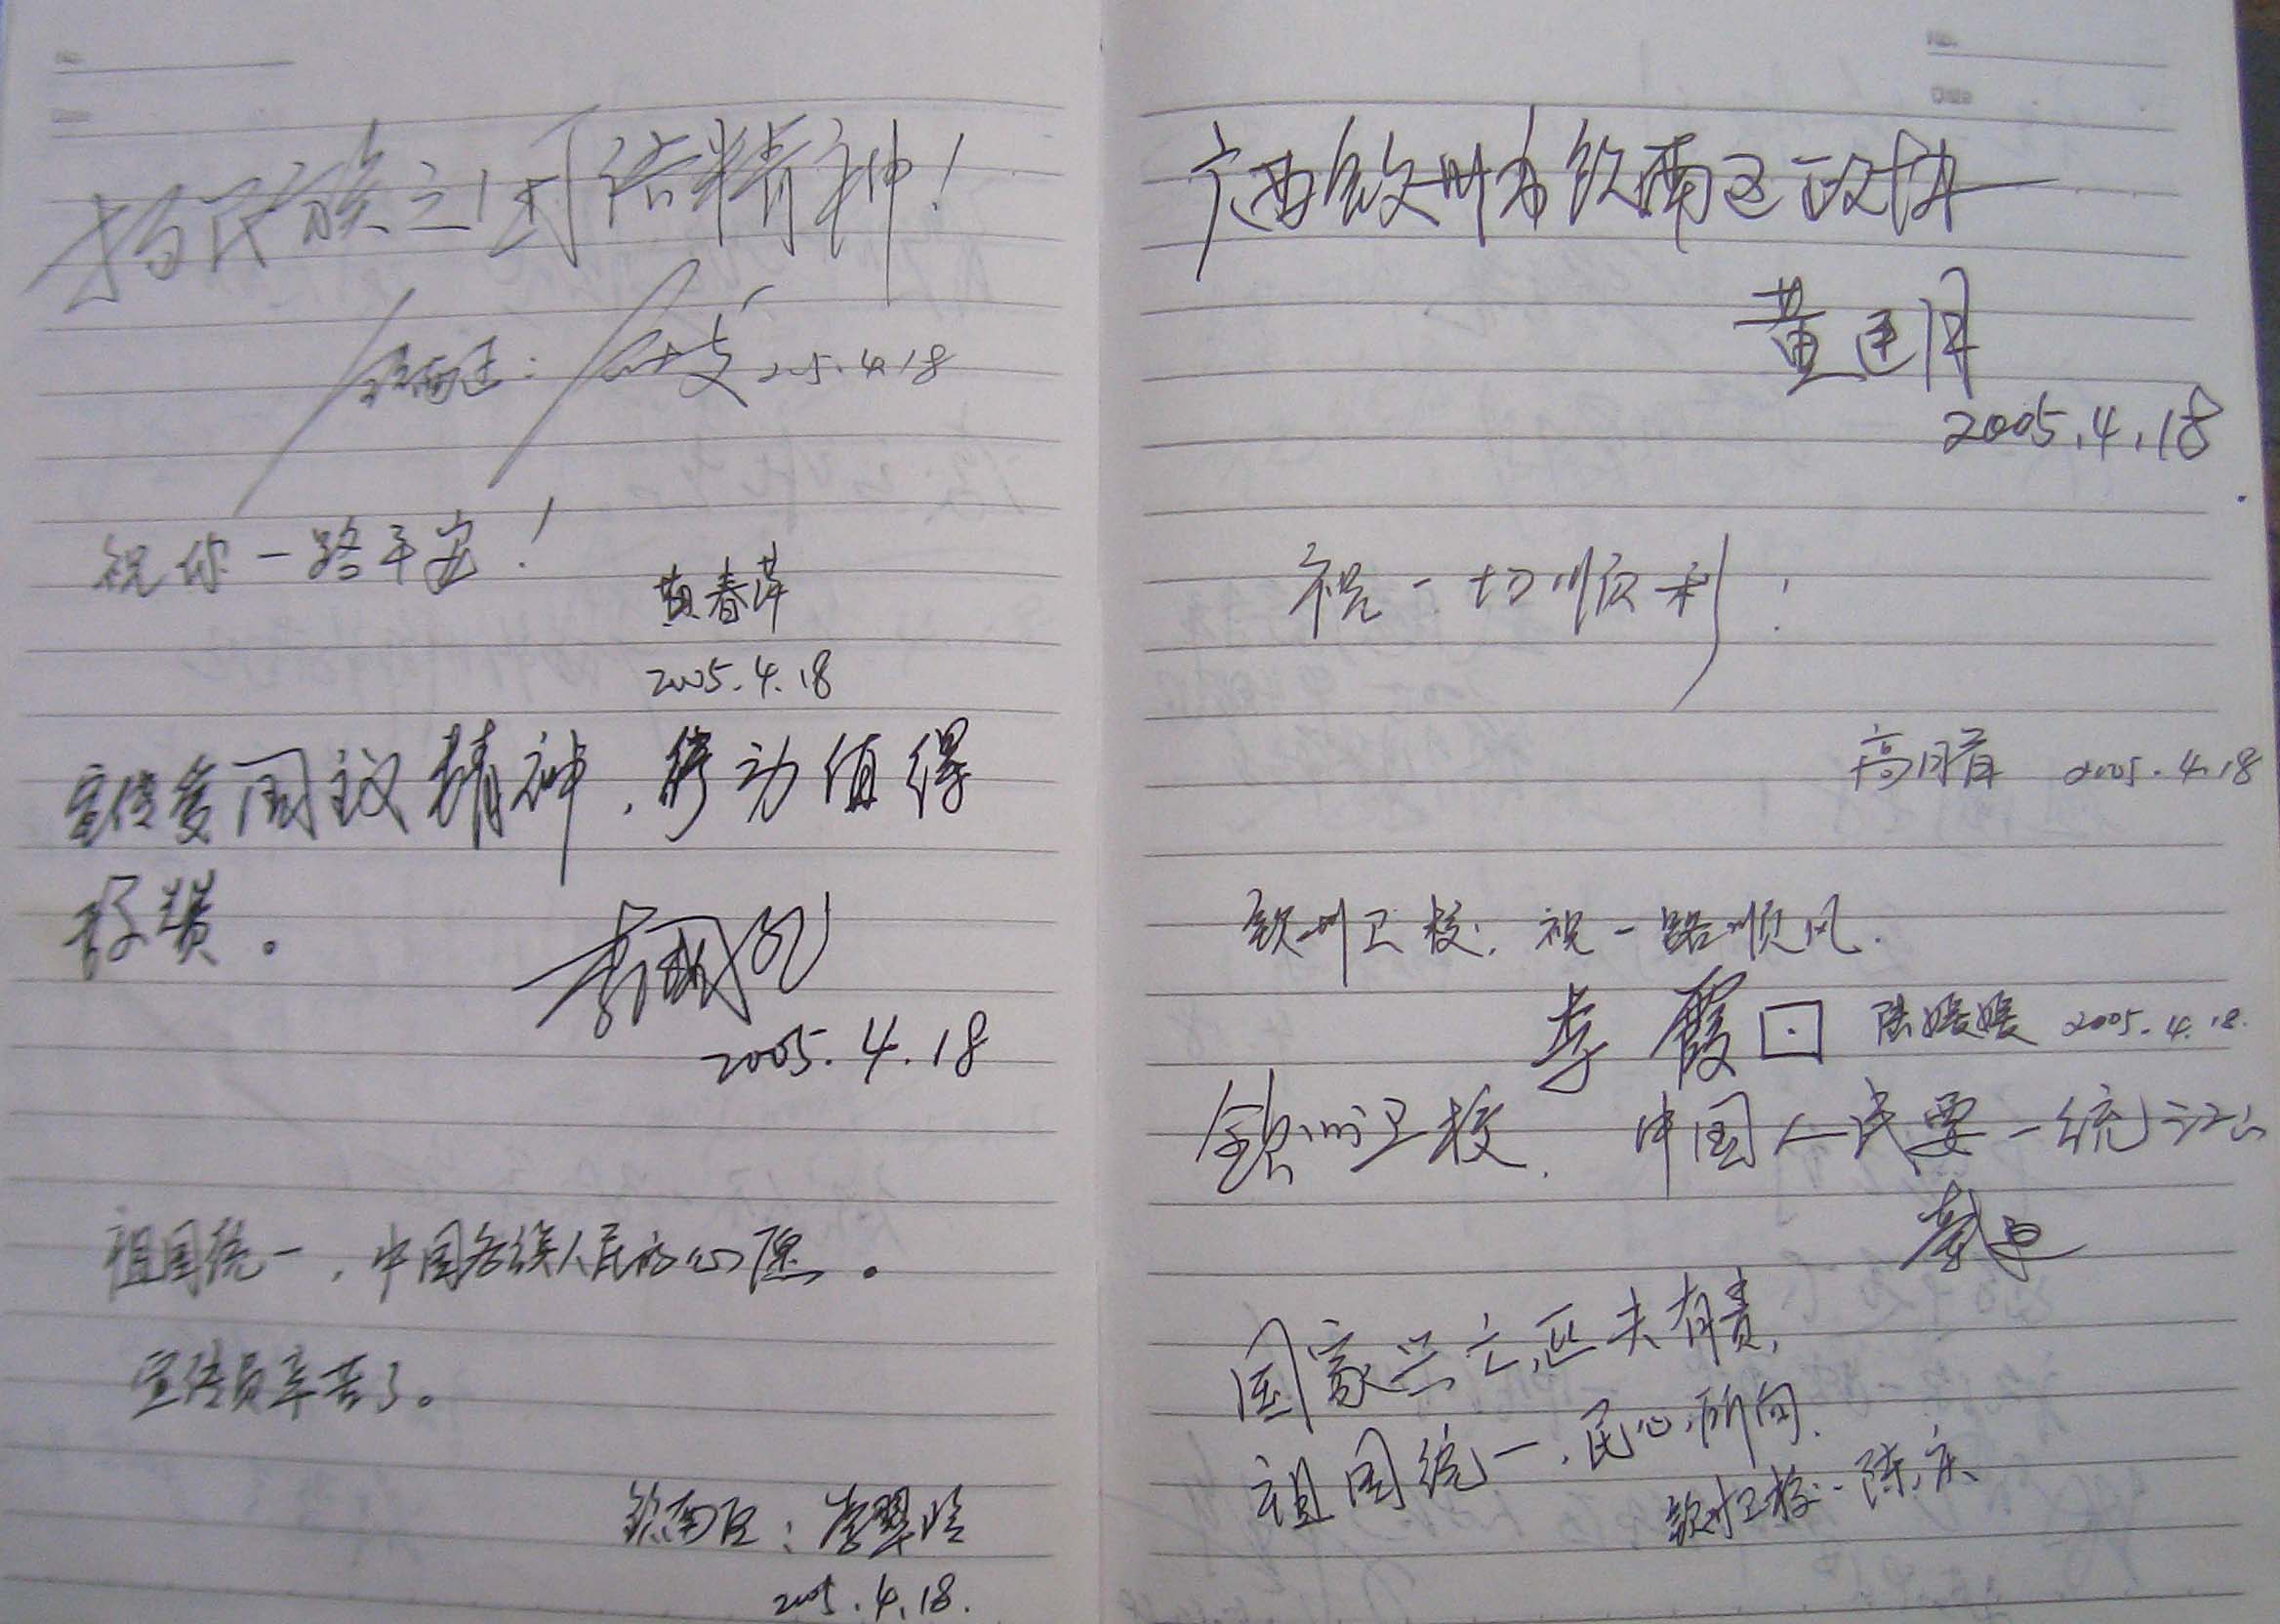 扬民族之团结精神!
钦南区:
2005.4.18
祝你一路平安!
黄春萍
2005.4.18
宣传爱国主义精神,行动值得
赞。
2005.4.18
祖国统一,中国各族人民的心愿。
宣传员辛苦了。
钦南区:李翠玲
2005.4.18.
广西钦州市钦南区政协
黄廷月
2005.4.18
祝一切顺利!
高月青 2005.4.18
钦州卫校,祝一路顺风.
李霞 陆媛媛 2005.4.18.
钦州卫校. 中国人民要一统江山
国家兴亡,匹夫有责,
祖国统一,民心所向.
钦州卫校--陈庆